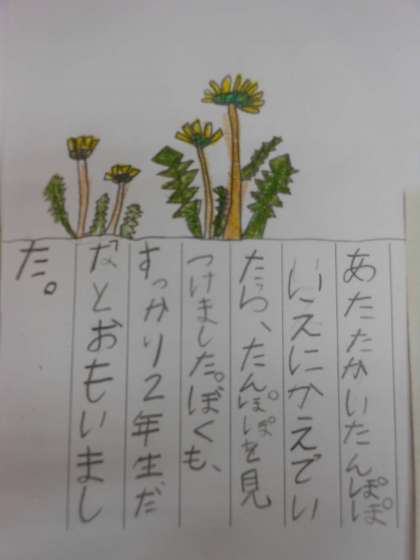 あたたかいたんぽぽ
いえにかえでい
たら、たんぽぽを見
つけました。ぼくも、
すっかり2年生だ
なとおもいまし
た。